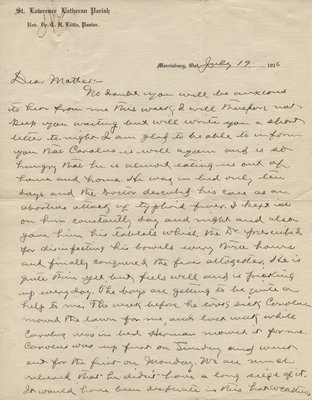 St. Lawrence Lutheran Parish
Rev. Dr. C. H. Little, Pastor.
Morrisburg, Ont. July 19 1916
Dear Mother:-
No doubt you will be anxious
to hear from me this week, I will therefore not
keep you waiting but will write you a short
letter tonight. I am glad to be able to inform
you that Carolus is well again and is so
hungry that he is almost eating me out of
house and home. He was in bed only ten
days and the Doctor described his case as an
abortive attack of typhoid fever. I kept ice
on him constantly day and night and also
gave him his tablets which the Dr. prescribed
for disinfecting his bowels every three hours
and finally conquered the fever altogether. He is
quite thin yet but feels well and is picking
up every day. The boys are getting to be quite a
help to me. The week before he took sick Carolus
mowed the lawn for me, and last week while
Carolus was in bed Herman mowed it for me.
Carolus was up first on Sunday and went
out for the first on Monday. We are much
relieved that he didn't have a long siege of it.
It would have been desperate in this hot weather.